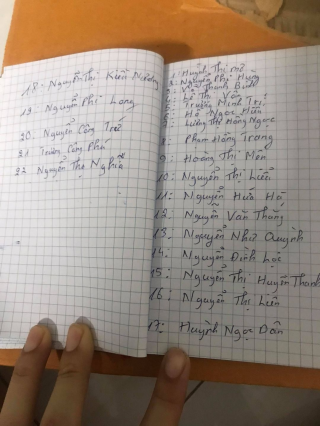 18. Nguyễn Thị Kiến Nương
19. Nguyễn Phi Long
20. Nguyễn Công Trứ
21 Trương Công Phú
22 Nguyễn Thọ Nghĩa
1. Huỳnh Thị Mỡ
2. Nguyễn Phi Hùng
3. Võ Thanh Bình
4. Lê Thị Vân
5. Trương Minh Trí
6. Hồ Ngọc Hiền
7. Lương Thị Hồng Ngọc
8. Phạm Hồng Trang
9: Hoàng Thị Mến
10: Nguyễn Thị Liễu
11: Nguyễn Hữu Hộ
12: Nguyễn Văn Thắng
13. Nguyễn Như Quỳnh
14. Nguyễn Đình Lọc
15: Nguyễn Thị Huyền Thanh
16: Nguyễn Thị Liên
17: Huỳnh Ngọc Dân